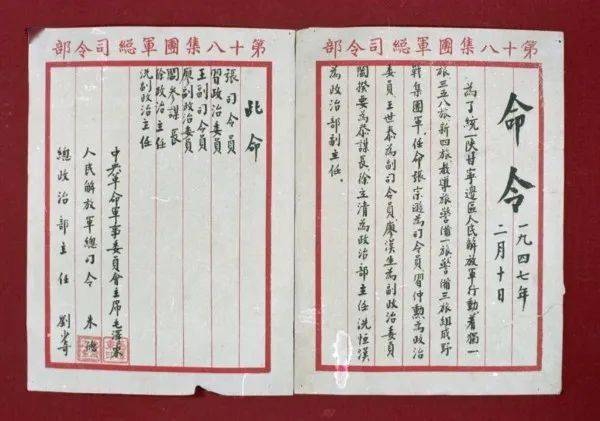 第十八集團軍總司令部
命令
一九四七年
二月十日
為了統一陝甘寧邊區人民解放軍行動着獨一
旅三五八旅新四旅教導旅警備一旅警備三旅組成野
戰集團軍．任命張宗遜為司令員習仲勳為政治
委員王世泰為副司令員廖漢生為副政治委員
閻揆要為參謀長徐立清為政治部主任冼恒漢
為政治部副主任．
第十八集團軍總司令部
此命
張司令員
習政治委員
王副司令員
廖副政治委員
閻參謀長
徐政治主任
冼副政治主任
中央革命軍事委員會主席毛澤東
人民解放軍總司令 朱德
總政治部主任 劉少奇